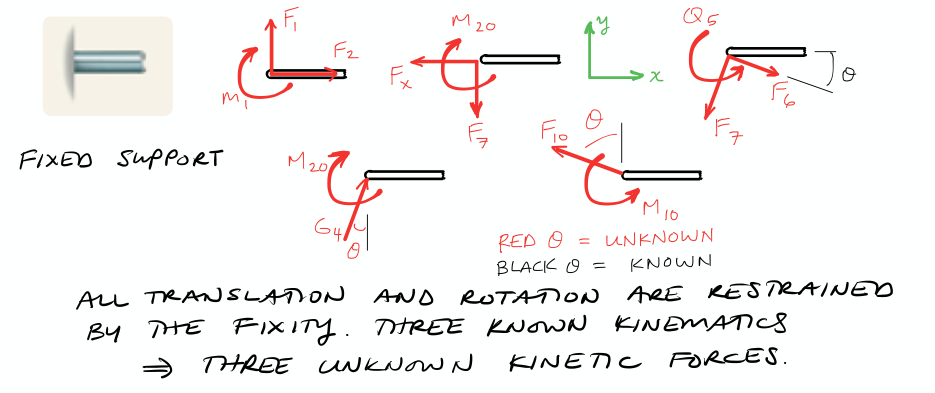 F₁
F₂
M₁
M₂₀
Fₓ
F₇
y
x
Q₅
F₆
F₇
θ
FIXED SUPPORT
M₂₀
G₄
θ
F₁₀
θ
M₁₀
RED θ = UNKNOWN
BLACK θ = KNOWN
ALL TRANSLATION AND ROTATION ARE RESTRAINED
BY THE FIXITY. THREE KNOWN KINEMATICS
⇒ THREE UNKNOWN KINETIC FORCES.